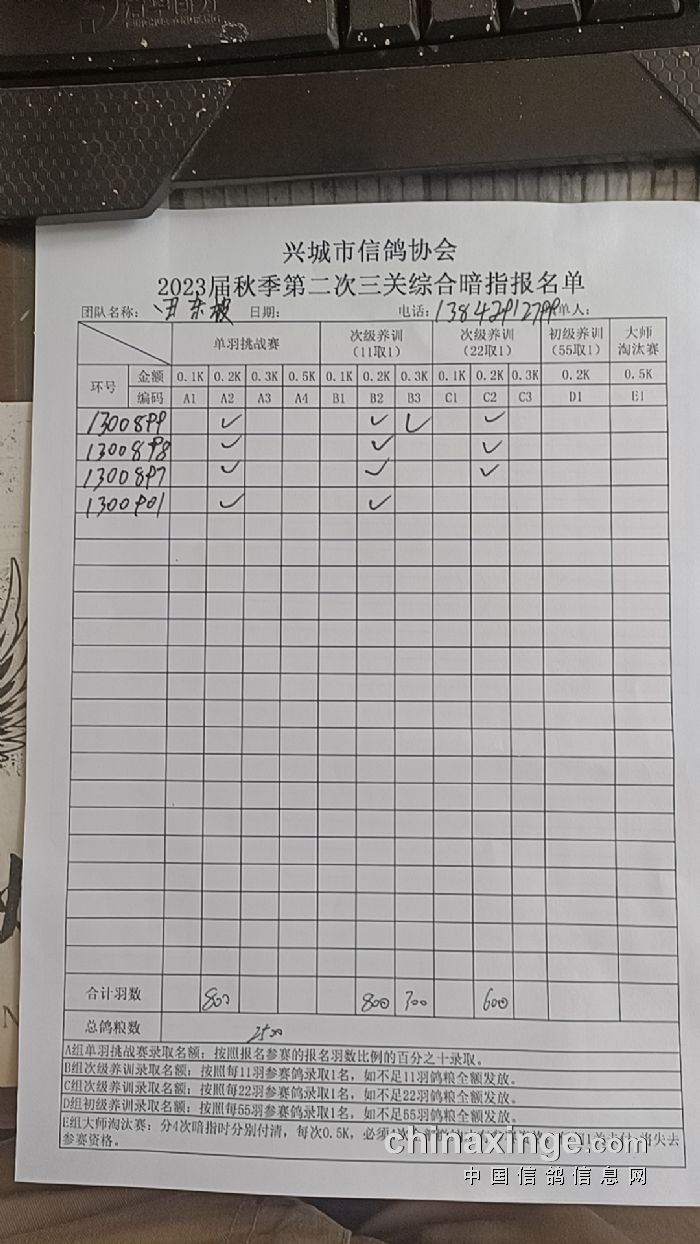 兴城市信鸽协会
2023届秋季第二次三关综合暗指报名单
团队名称： 日期： 电话： 单人：
单羽挑战赛 次级养训（11取1） 次级养训（22取1） 初级养训（55取1） 大师淘汰赛
环号 金额 0.1K 0.2K 0.3K 0.5K 0.1K 0.2K 0.3K 0.1K 0.2K 0.3K 0.2K 0.5K
编码 A1 A2 A3 A4 B1 B2 B3 C1 C2 C3 D1 E1
1300899 ✓ ✓ ✓ ✓
1300898 ✓ ✓ ✓
1300897 ✓ ✓ ✓
1300901 ✓ ✓
合计羽数 800 800 300 600
总鸽粮数 2500
A组单羽挑战赛录取名额：按照报名参赛的报名羽数比例的百分之十录取。
B组次级养训录取名额：按照每11羽参赛鸽录取1名，如不足11羽鸽粮全额发放。
C组次级养训录取名额：按照每22羽参赛鸽录取1名，如不足22羽鸽粮全额发放。
D组初级养训录取名额：按照每55羽参赛鸽录取1名，如不足55羽鸽粮全额发放。
E组大师淘汰赛：分4次暗指时分别付清，每次0.5K，必须
参赛资格。
chinaxinge.com
中国信鸽信息网